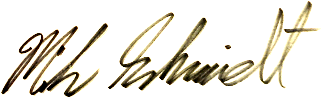 Mike Schmidt